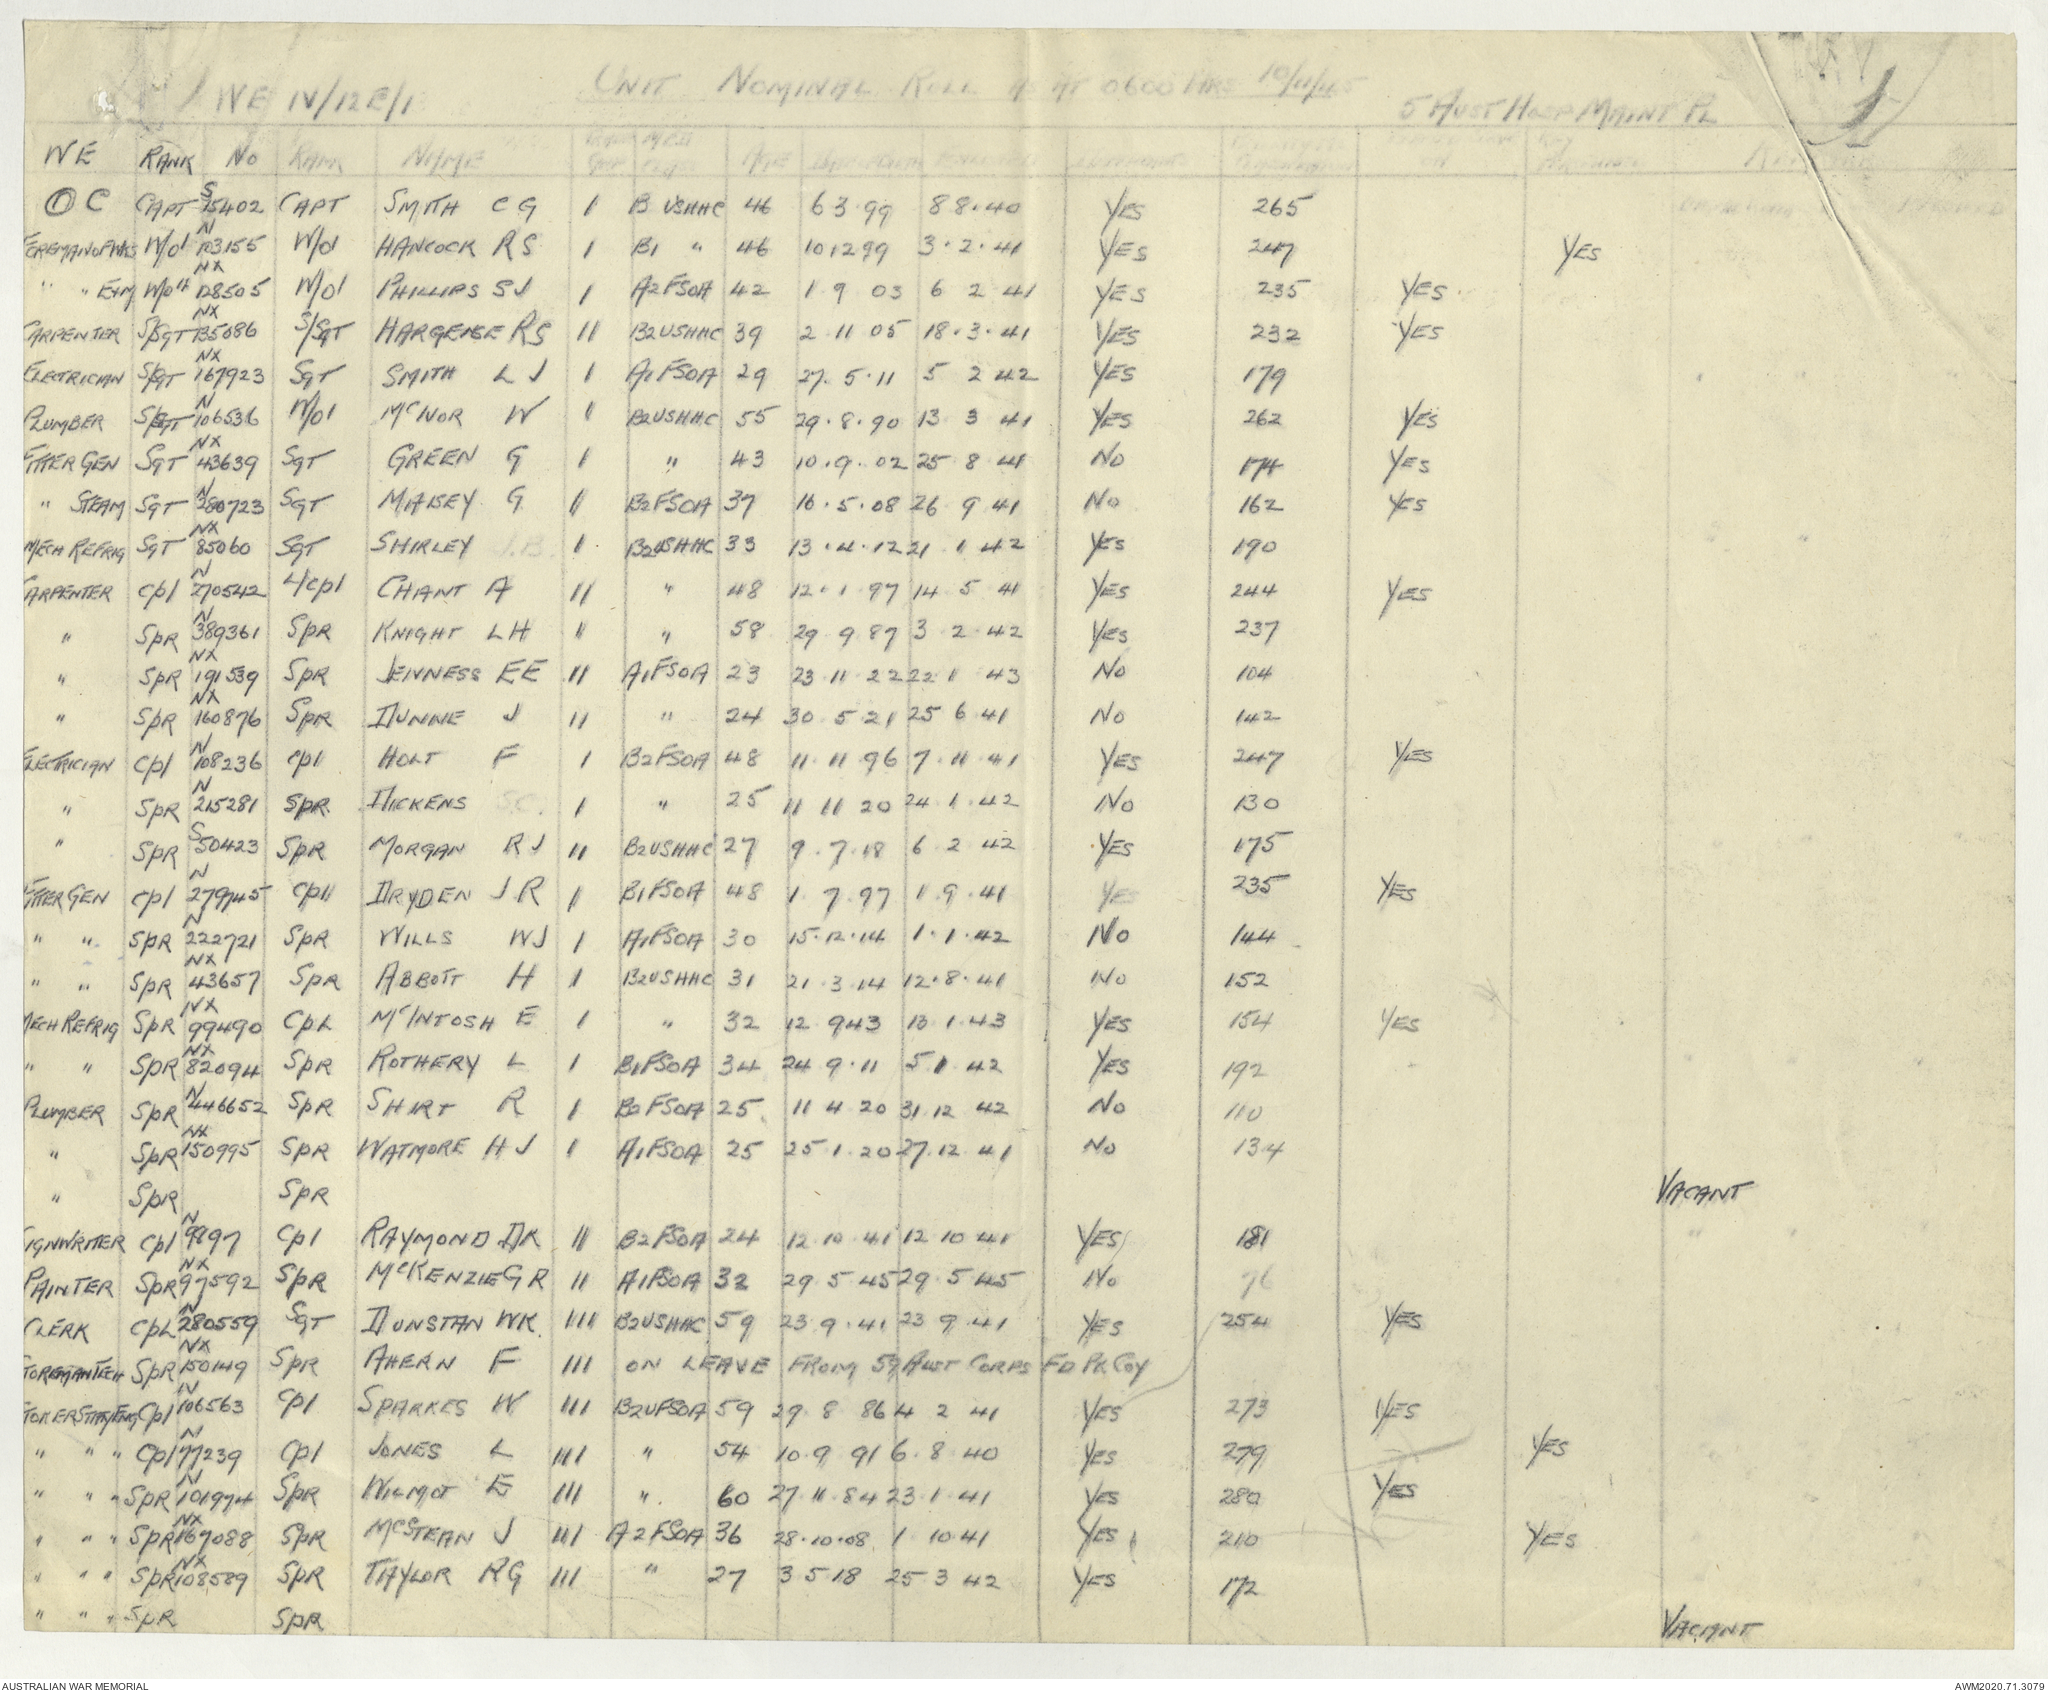 WE IV/12E/1 UNIT NOMINAL ROLL AS AT 0600 HRS 10/11/45 5 AUST HOSP MAINT PL 1
WE RANK NO RANK NAME AGE
OC CAPT S15402 CAPT SMITH C G I B USHHC 46 6 3 99 8 8 40 YES 265
FOREMAN OF WKS W/O1 N103155 W/O1 HANCOCK R S I B1 " 46 10 12 99 3.2.41 YES 247 YES
" " E+M W/O11 NX128505 W/O1 PHILLIPS S J I A2 FSOA 42 1 9 03 6 2 41 YES 235 YES
CARPENTER S/SGT NX135086 S/SGT HARGENSE R S II B2 USHHC 39 2 11 05 18.3.41 YES 232 YES
ELECTRICIAN S/SGT NX167923 SGT SMITH L J I A1 FSOA 29 27.5.11 5 2 42 YES 179
PLUMBER S/SGT N106536 W/O1 McNOR W II B2 USHHC 55 29.8.90 13 3 41 YES 262 YES
FITTER GEN SGT NX43639 SGT GREEN G I " 43 10.9.02 25 8 41 NO 174 YES
" STEAM SGT N280723 SGT MAISEY G II B2 FSOA 37 16.5.08 26 9 41 NO 162 YES
MECH REFRIG SGT NX85060 SGT SHIRLEY J.B. I B2 USHHC 33 13.4.12 21 1 42 YES 190
CARPENTER Cpl N270542 L/Cpl CHANT A II " 48 12.1 97 14 5 41 YES 244 YES
" SPR N389361 SPR KNIGHT L H II " 58 29 9 87 3 2 42 YES 237
" SPR NX191539 SPR JENNESS E E III A1 FSOA 23 23 11 22 22 1 43 NO 104
" SPR NX160876 SPR DUNNE J II " 24 30 5 21 25 6 41 NO 142
ELECTRICIAN Cpl N108236 Cpl HOLT F I B2 FSOA 48 11 11 96 7.11.41 YES 247 YES
" SPR N215281 SPR DICKENS S.C. I " 25 11 11 20 24.1.42 NO 130
" SPR S50423 SPR MORGAN R J II B2 USHHC 27 9.7.18 6 2 42 YES 175
FITTER GEN Cpl N279745 Cpl DRYDEN J R I B1 FSOA 48 1 7.97 1 9.41 YES 235 YES
" " SPR N222721 SPR WILLS W J I A1 FSOA 30 15.12.14 1.1.42 NO 144
" " SPR NX43657 SPR ABBOTT H I B2 USHHC 31 21.3.14 12.8.41 NO 152
MECH REFRIG SPR NX99490 CPL McINTOSH E I " 32 12 9 43 13 1.43 YES 154 YES
" " SPR NX82094 SPR ROTHERY L I B1 FSOA 34 24 9.11 5 1 42 YES 192
PLUMBER SPR N446652 SPR SHIRT R I B2 FSOA 25 11 4 20 31 12 42 NO 110
" SPR NX150995 SPR WATMORE H J I A1 FSOA 25 25.1.20 27.12.41 NO 134
" SPR SPR VACANT
SIGNWRITER Cpl N9897 Cpl RAYMOND D K II B2 FSOA 24 12.10.41 12 10 41 YES 181
PAINTER SPR NX97592 SPR McKENZIE G R II A1 FSOA 32 29.5.45 29.5.45 NO 76
CLERK CPL N280559 SGT DUNSTAN W K. IIII B2 USHHC 59 23 9.41 23 9.41 YES 254 YES
STOREMAN TECH SPR NX150149 SPR AHERN F III ON LEAVE FROM 59 AUST CORPS FD PK COY
STOKER STATY ENG Cpl N106563 Cpl SPARKES W III B2 UFSOA 59 29 8 86 4 2 41 YES 273 YES
" " " Cpl N77239 Cpl JONES L III " 54 10.9 91 6.8.40 YES 279 YES
" " " SPR N101974 SPR WILMOT E III " 60 27.11.84 23.1.41 YES 280 YES
" " " SPR NX167088 SPR McSTEAN J III A2 FSOA 36 28.10.08 1 10 41 YES 210 YES
" " " SPR NX108589 SPR TAYLOR R G III " 27 3 5 18 25 3 42 YES 172
" " " SPR SPR VACANT
AUSTRALIAN WAR MEMORIAL AWM2020.71.3079